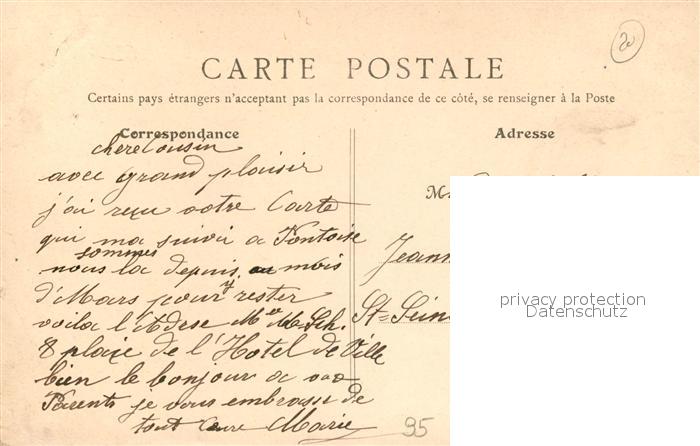 20
CARTE POSTALE
Certains pays étrangers n'acceptant pas la correspondance de ce côté, se renseigner à la Poste
Correspondance
Adresse
chere Cousin
avec grand plaisir
j'ai reçu votre Carte
qui ma suivi a Pontoise
sommes
nous la depuis au mois
d'Mars pour y rester
voila l'Adese Mr Me Sch.
8 place de l'Hotel de Ville
bien le bonjour a vos
Parents je vous embrasse de
tout Cœure Marie
M
Jeann
St Sein
privacy protection
Datenschutz
95